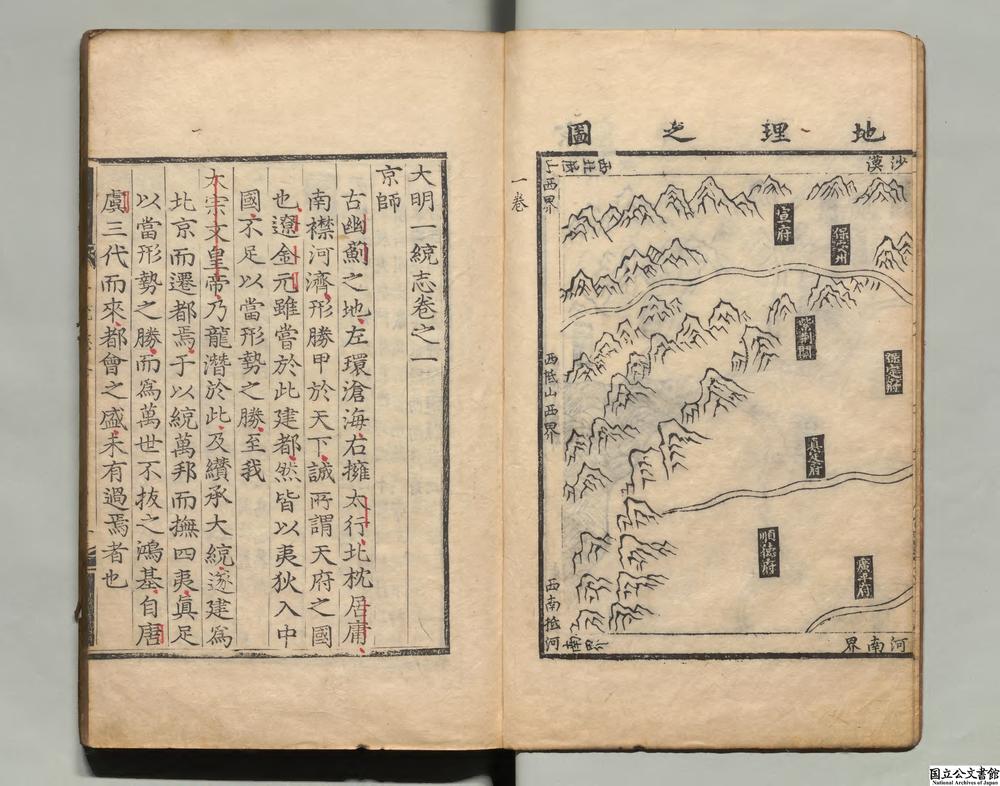 地理之圖
沙漠
山西界
宣府
保安州
紫荊關
保定府
西抵山西界
真定府
順德府
廣平府
西南抵河
河南界
一卷
大明一統志卷之一
京師
古幽薊之地左環滄海右擁太行北枕居庸
南襟河濟形勝甲於天下誠所謂天府之國
也遼金元雖嘗於此建都然皆以夷狄入中
國不足以當形勢之勝至我
太宗文皇帝乃龍潛於此及纘承大統遂建為
北京而遷都焉于以統萬邦而撫四夷真足
以當形勢之勝而為萬世不拔之鴻基自唐
虞三代而來都會之盛未有過焉者也
国立公文書館
National Archives of Japan